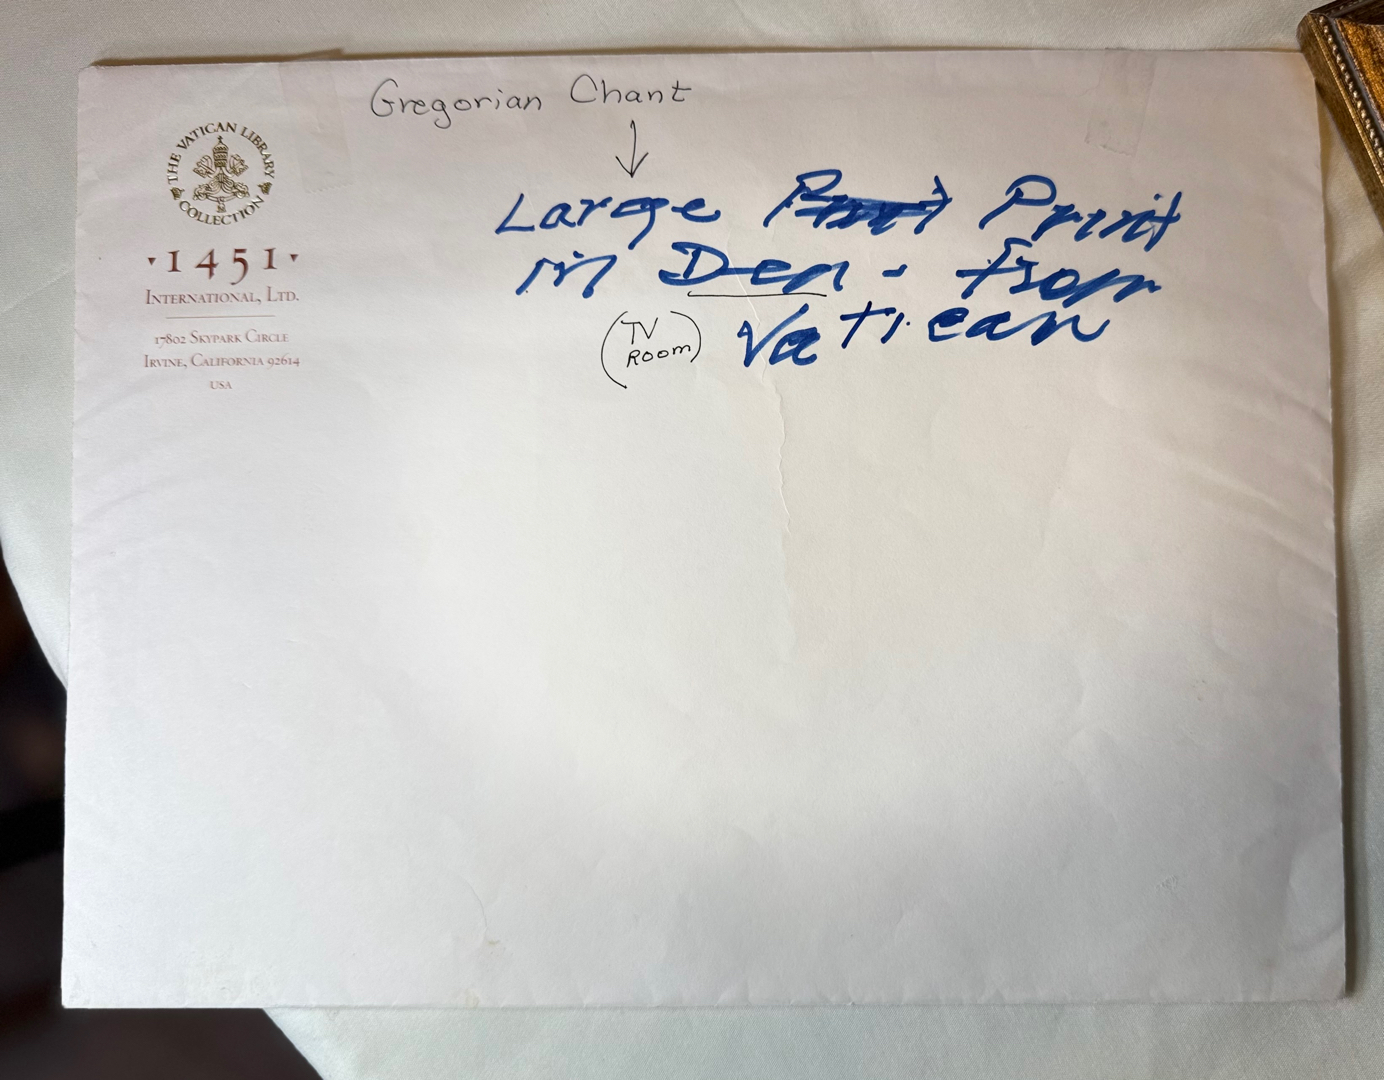 Gregorian Chant
THE VATICAN LIBRARY
COLLECTION
1451
INTERNATIONAL, LTD.
17802 SKYPARK CIRCLE
IRVINE, CALIFORNIA 92614
USA
Large Print
in Den - from
(TV
ROOM)
Vatican